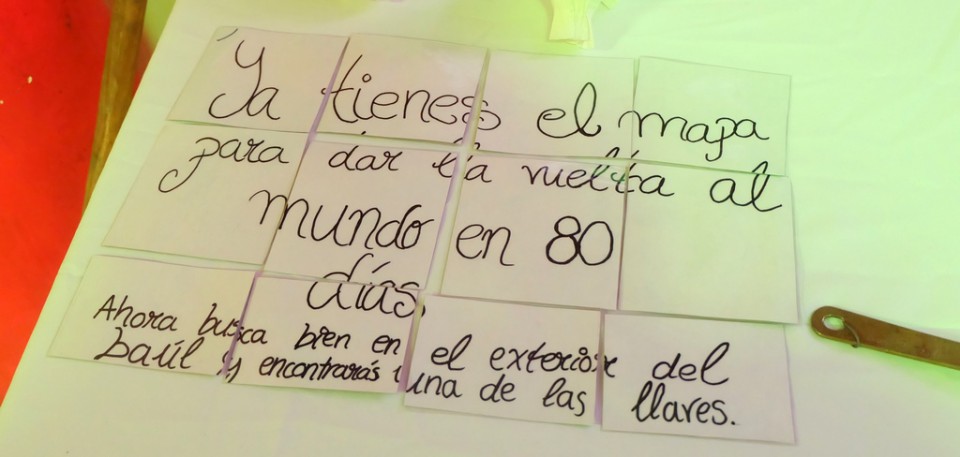 Ya tienes el mapa
para dar la vuelta al
mundo en 80
días.
Ahora busca bien en el exterior del
baúl y encontrarás una de las llaves.